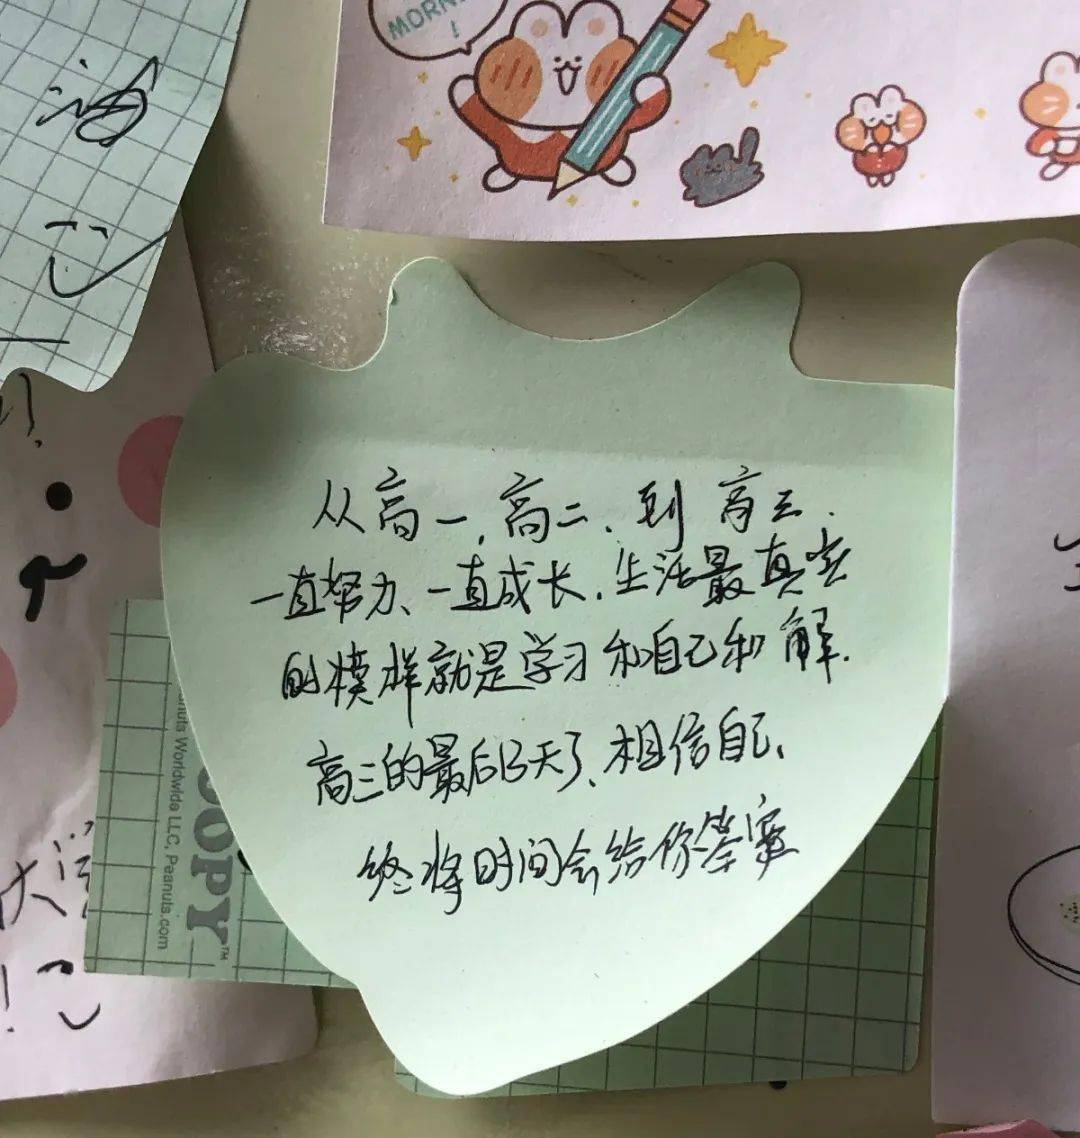 MORN
!
油
从高一,高二、到高三.
一直努力、一直成长.生活最真实
的模样就是学习和自己和解.
高三的最后13天了、相信自己、
终将时间会给你答案
nuts Worldwide LLC, Peanuts.com
OOPY™
大
!